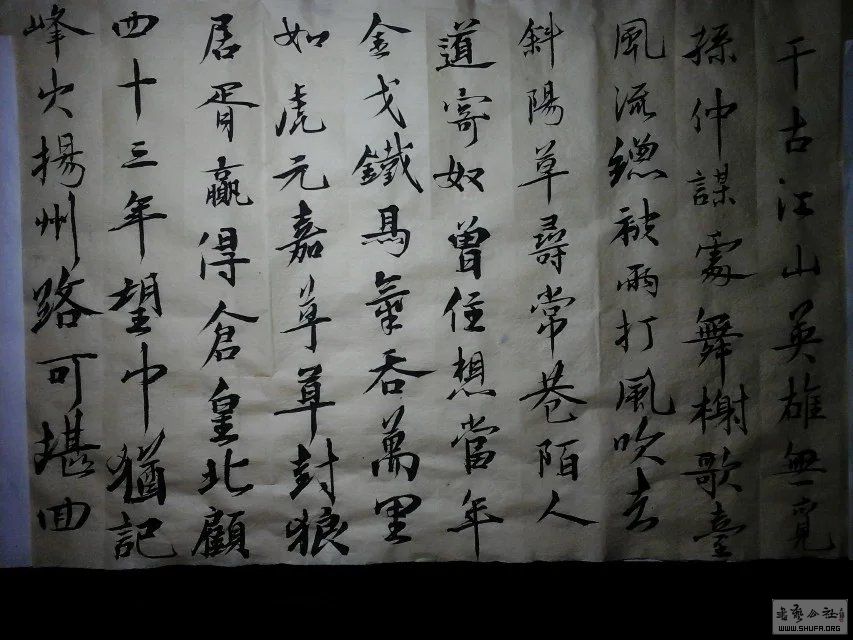 千古江山英雄無覓
孫仲謀處舞榭歌臺
風流總被雨打風吹去
斜陽草尋常巷陌人
道寄奴曾住想當年
金戈鐵馬氣吞萬里
如虎元嘉草草封狼
居胥贏得倉皇北顧
四十三年望中猶記
峰火揚州路可堪回
書藝公社
WWW.SHUFA.ORG